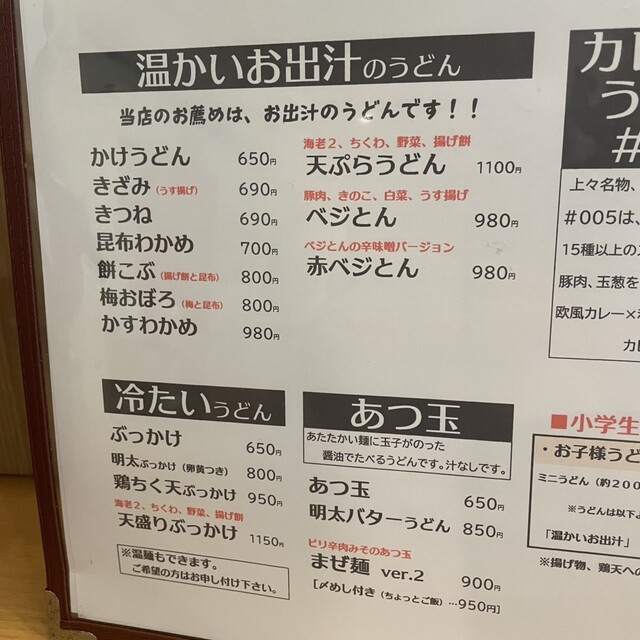 温かいお出汁のうどん
当店のお薦めは、お出汁のうどんです！！
かけうどん 650円
きざみ（うす揚げ） 690円
きつね 690円
昆布わかめ 700円
餅こぶ（揚げ餅と昆布） 800円
梅おぼろ（梅と昆布） 800円
かすわかめ 980円
海老２、ちくわ、野菜、揚げ餅
天ぷらうどん 1100円
豚肉、きのこ、白菜、うす揚げ
ベジとん 980円
ベジとんの辛味噌バージョン
赤ベジとん 980円
冷たいうどん
ぶっかけ 650円
明太ぶっかけ（卵黄つき） 800円
鶏ちく天ぶっかけ 950円
海老２、ちくわ、野菜、揚げ餅
天盛りぶっかけ 1150円
※温麺もできます。
ご希望の方はお申し付け下さい。
あつ玉
あたたかい麺に玉子がのった
醤油でたべるうどんです。汁なしです。
あつ玉 650円
明太バターうどん 850円
ピリ辛肉みそのあつ玉
まぜ麺 ver.2 900円
［〆めし付き（ちょっとご飯）…950円］
う
#
上々名物、
＃005は、
15種以上の
豚肉、玉葱を
欧風カレー×
カ
■小学生
・お子様うど
ミニうどん（約２００
※うどんは以下
「温かいお出汁」
※揚げ物、鶏天への